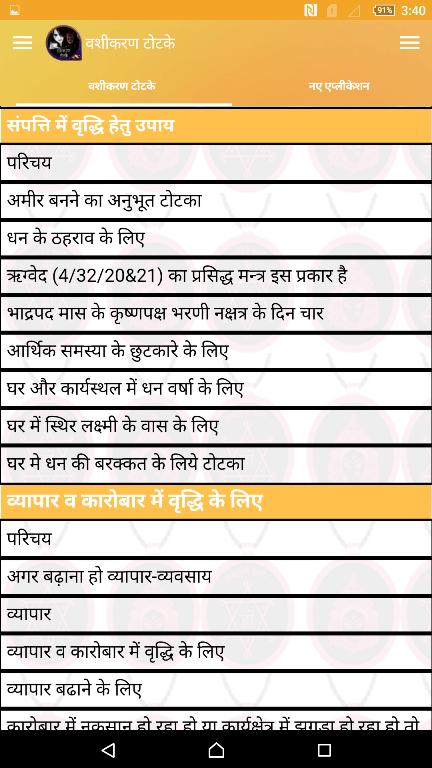 91%
3:40
वशीकरण टोटके
वशीकरण टोटके
नए एप्लीकेशन
संपत्ति में वृद्धि हेतु उपाय
परिचय
अमीर बनने का अनुभूत टोटका
धन के ठहराव के लिए
ऋग्वेद (4/32/20&21) का प्रसिद्ध मन्त्र इस प्रकार है
भाद्रपद मास के कृष्णपक्ष भरणी नक्षत्र के दिन चार
आर्थिक समस्या के छुटकारे के लिए
घर और कार्यस्थल में धन वर्षा के लिए
घर में स्थिर लक्ष्मी के वास के लिए
घर मे धन की बरक्कत के लिये टोटका
व्यापार व कारोबार में वृद्धि के लिए
परिचय
अगर बढ़ाना हो व्यापार-व्यवसाय
व्यापार
व्यापार व कारोबार में वृद्धि के लिए
व्यापार बढाने के लिए
कारोबार में नुकसान हो रहा हो या कार्यक्षेत्र में झगडा हो रहा हो तो